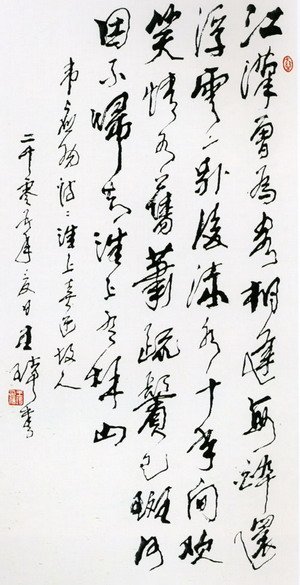 江漢曾為客相逢每醉還
浮雲一別後流水十年間歡
笑情如舊蕭疏鬢已斑何
因不歸去淮上有秋山
韦应物诗淮上喜逢故人
二千零五年夏日書